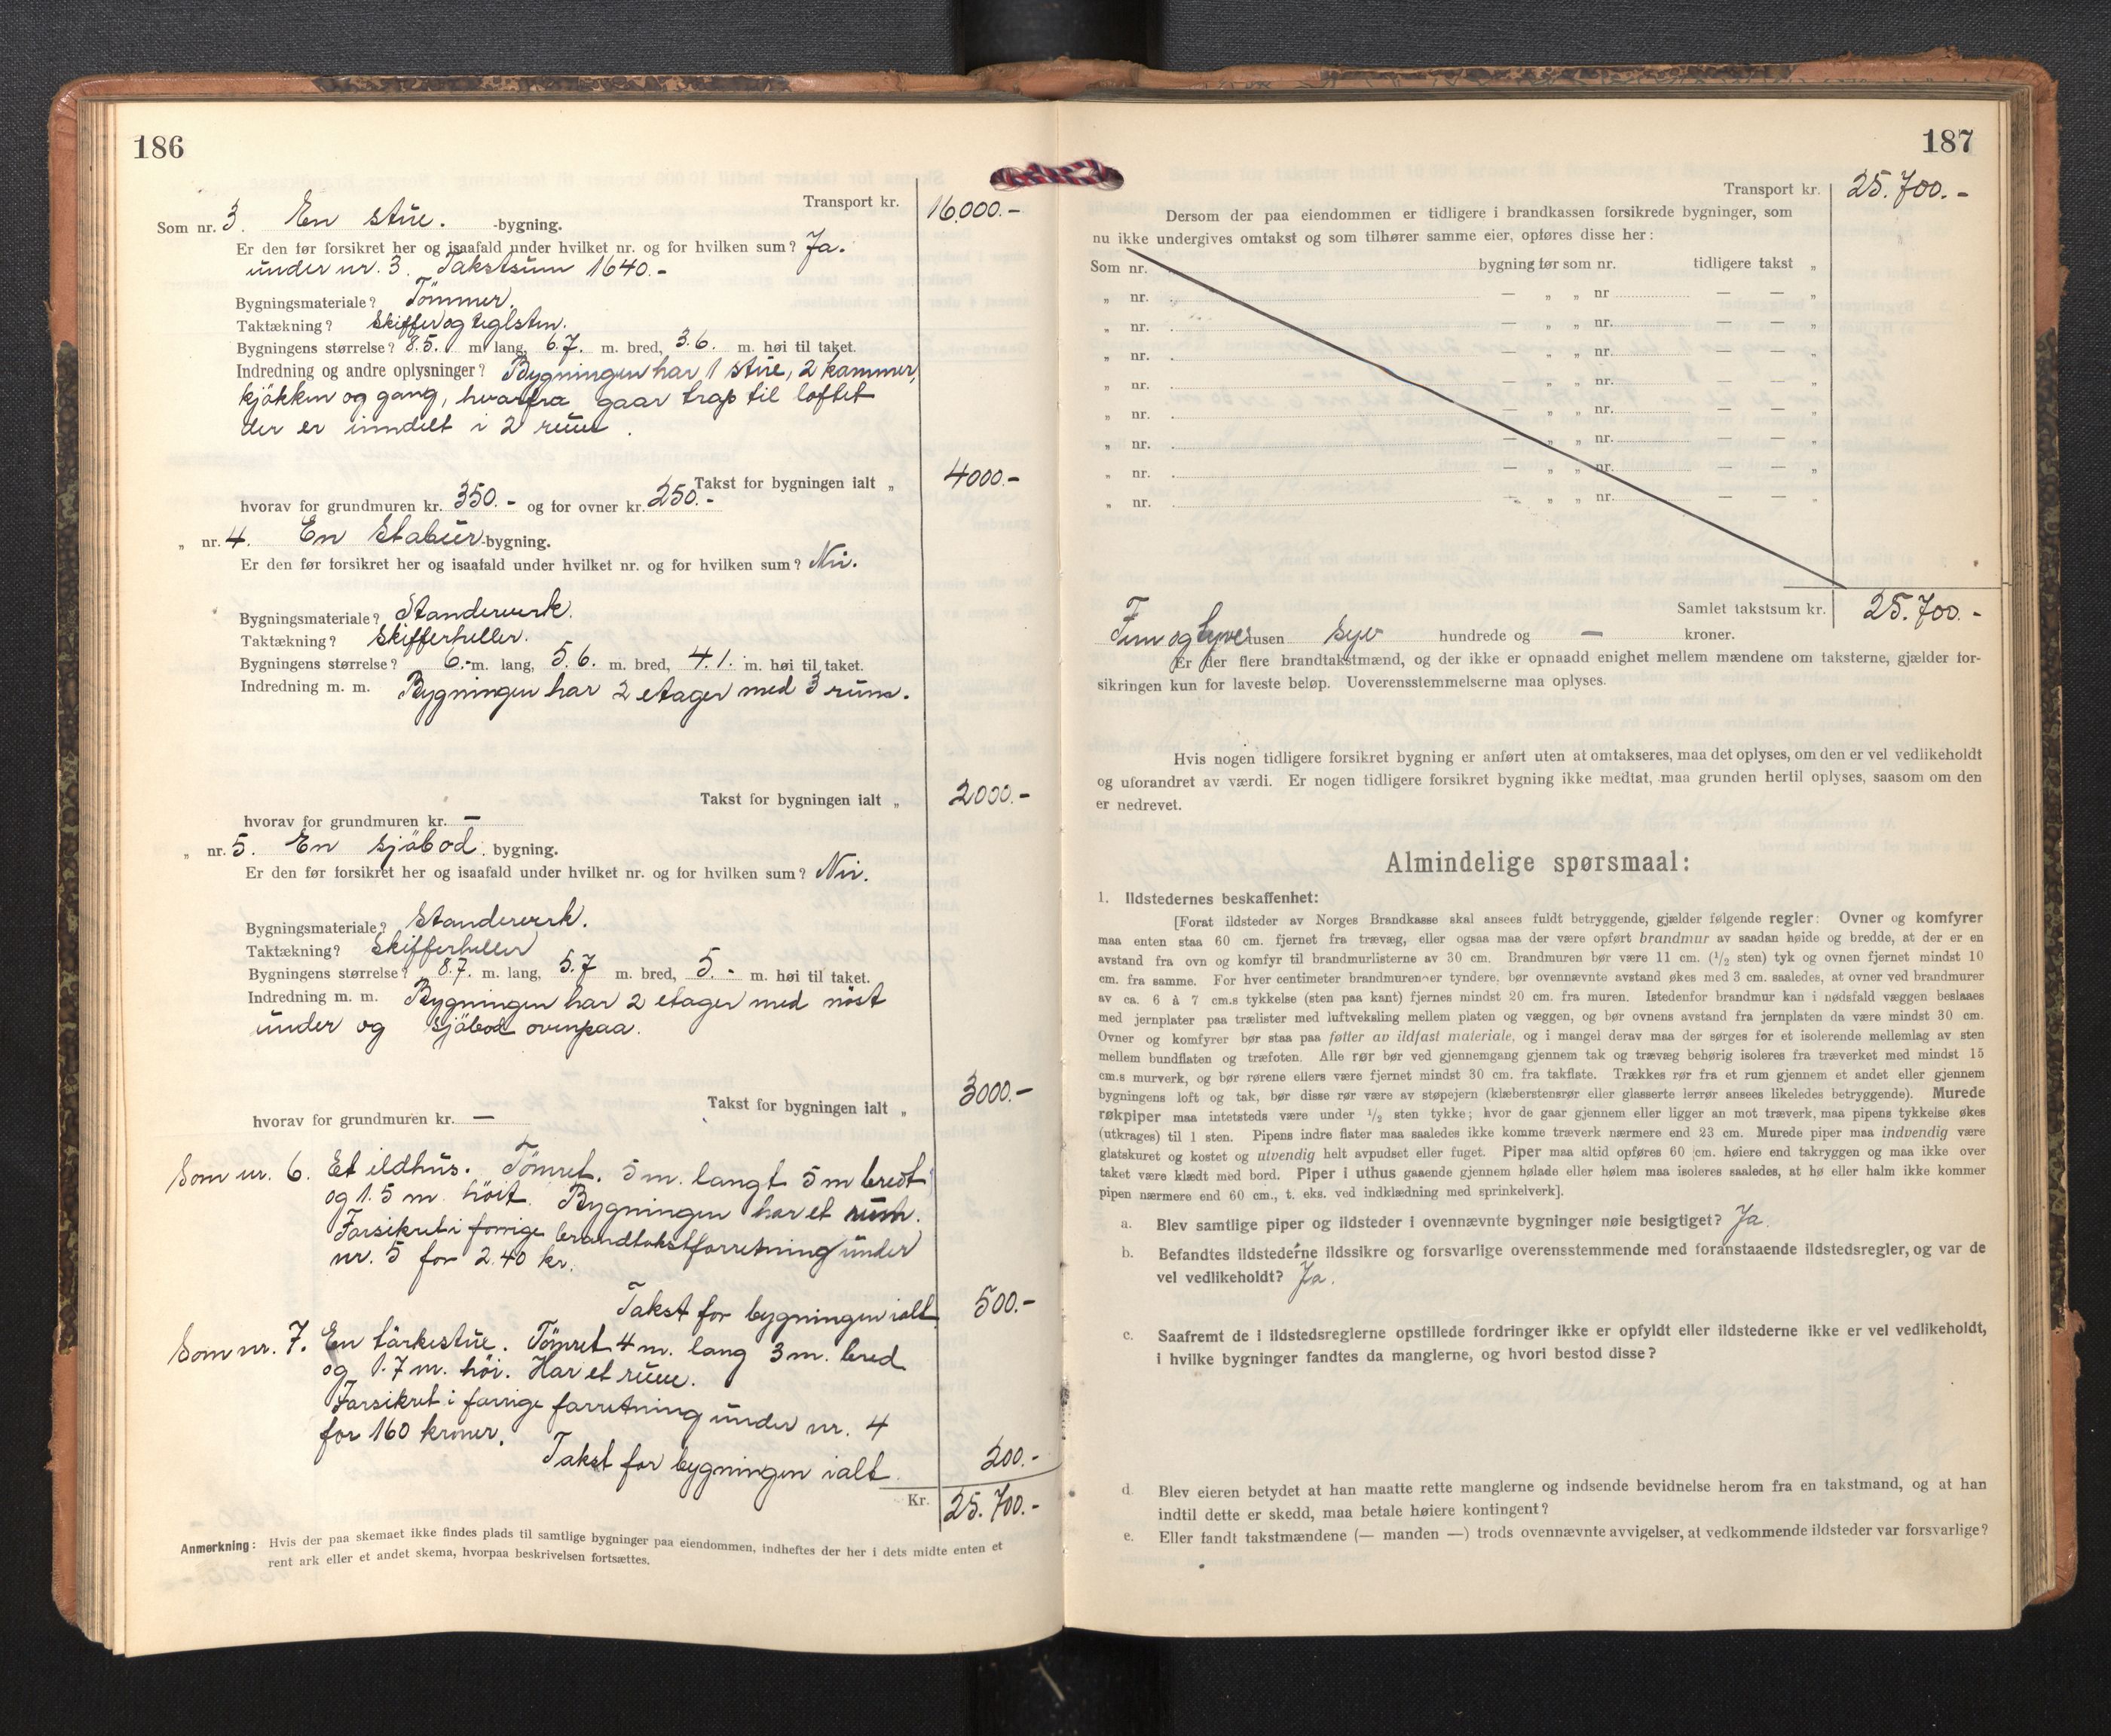 186
Transport kr. 16.000.-
Som nr. 3. En stue. -bygning.
Er den før forsikret her og isaafald under hvilket nr. og for hvilken sum? Ja.
under nr. 3. Takstsum 1640.-
Bygningsmateriale? Tömmer.
Taktækning? Skiffer og teglsten.
Bygningens størrelse? 8.5. m lang, 6.7. m. bred, 3.6. m. høi til taket.
Indredning og andre oplysninger? Bygningen har 1 stue, 2 kammer,
kjökken og gang, hvorfra gaar trap til loftet
der er inndelt i 2 rum.
Takst for bygningen ialt „ 4000.-
hvorav for grundmuren kr. 350.- og for ovner kr. 250.-
„ nr. 4. En Stabur-bygning.
Er den før forsikret her og isaafald under hvilket nr. og for hvilken sum? Nei.
Bygningsmateriale? Standerverk.
Taktækning? Skifferheller.
Bygningens størrelse? 6.- m. lang, 5.6. m. bred, 4.1. m. høi til taket.
Indredning m. m. Bygningen har 2 etager med 3 rum.
Takst for bygningen ialt „ 2000.-
hvorav for grundmuren kr. —
„ nr. 5. En sjöbod. bygning.
Er den før forsikret her og isaafald under hvilket nr. og for hvilken sum? Nei.
Bygningsmateriale? Standerverk.
Taktækning? Skifferheller
Bygningens størrelse? 8.7. m. lang, 5.7 m. bred, 5.- m. høi til taket.
Indredning m. m. Bygningen har 2 etager med nöst
under og sjöbod ovenpaa.
Takst for bygningen ialt „ 3000.-
hvorav for grundmuren kr. —
Som nr. 6. Et ildhus. Tömret. 5 m. langt 5 m bredt
og 1.5 m. höit. Bygningen har et rum.
Forsikret i forrige brandtakstforretning under
nr. 5 for 240 kr.
Takst for bygningen ialt 500.-
Som nr. 7. En törkestue. Tömret 4 m. lang 3 m. bred
og 1.7 m. höi. Har et rum.
Forsikret i forrige forretning under nr. 4
for 160 kroner.
Takst for bygningen ialt. 200.-
Kr. 25.700.-
Anmerkning: Hvis der paa skemaet ikke findes plads til samtlige bygninger paa eiendommen, indheftes der her i dets midte enten et
rent ark eller et andet skema, hvorpaa beskrivelsen fortsættes.
187
Transport kr. 25.700.-
Dersom der paa eiendommen er tidligere i brandkassen forsikrede bygninger, som
nu ikke undergives omtakst og som tilhører samme eier, opføres disse her:
Som nr. bygning før som nr. tidligere takst „
„ nr. — „ „ nr — — „
„ nr. — „ „ nr. — — „
„ nr. — „ „ nr. — — „
„ nr. — „ „ nr. — — „
„ nr. — „ „ nr. — — „
„ nr. — „ „ nr. — — „
„ nr. — „ „ nr. — — „
„ nr. — „ „ nr. — — „
Samlet takstsum kr. 25.700.-
Fem og tyve tusen syv hundrede og — kroner.
Er der flere brandtakstmænd, og der ikke er opnaadd enighet mellem mændene om taksterne, gjælder for-
sikringen kun for laveste beløp. Uoverensstemmelserne maa oplyses.
Hvis nogen tidligere forsikret bygning er anført uten at omtakseres, maa det oplyses, om den er vel vedlikeholdt
og uforandret av værdi. Er nogen tidligere forsikret bygning ikke medtat, maa grunden hertil oplyses, saasom om den
er nedrevet.
Almindelige spørsmaal:
1. Ildstedernes beskaffenhet:
[Forat ildsteder av Norges Brandkasse skal ansees fuldt betryggende, gjælder følgende regler: Ovner og komfyrer
maa enten staa 60 cm. fjernet fra trævæg, eller ogsaa maa der være opført brandmur av saadan høide og bredde, at der er en
avstand fra ovn og komfyr til brandmurlisterne av 30 cm. Brandmuren bør være 11 cm. (1/2 sten) tyk og ovnen fjernet mindst 10
cm. fra samme. For hver centimeter brandmuren er tyndere, bør ovennævnte avstand økes med 3 cm. saaledes, at ovner ved brandmurer
av ca. 6 à 7 cm.s tykkelse (sten paa kant) fjernes mindst 20 cm. fra muren. Istedenfor brandmur kan i nødsfald væggen beslaaes
med jernplater paa trælister med luftveksling mellem platen og væggen, og bør ovnens avstand fra jernplaten da være mindst 30 cm.
Ovner og komfyrer bør staa paa føtter av ildfast materiale, og i mangel derav maa der sørges for et isolerende mellemlag av sten
mellem bundflaten og træfoten. Alle rør bør ved gjennemgang gjennem tak og trævæg behørig isoleres fra træverket med mindst 15
cm.s murverk, og bør rørene ellers være fjernet mindst 30 cm. fra takflate. Trækkes rør fra et rum gjennem et andet eller gjennem
bygningens loft og tak, bør disse rør være av støpejern (klæberstensrør eller glasserte lerrør ansees likeledes betryggende). Murede
røkpiper maa intetsteds være under 1/2 sten tykke; hvor de gaar gjennem eller ligger an mot træverk, maa pipens tykkelse økes
(utkrages) til 1 sten. Pipens indre flater maa saaledes ikke komme træverk nærmere end 23 cm. Murede piper maa indvendig være
glatskuret og kostet og utvendig helt avpudset eller fuget. Piper maa altid opføres 60 cm. høiere end takryggen og maa ikke over
taket være klædt med bord. Piper i uthus gaaende gjennem hølade eller hølem maa isoleres saaledes, at hø eller halm ikke kommer
pipen nærmere end 60 cm., t. eks. ved indklædning med sprinkelverk].
a. Blev samtlige piper og ildsteder i ovennævnte bygninger nøie besigtiget? Ja.
b. Befandtes ildstederne ildssikre og forsvarlige overensstemmende med foranstaaende ildstedsregler, og var de
vel vedlikeholdt? Ja.
c. Saafremt de i ildstedsreglerne opstillede fordringer ikke er opfyldt eller ildstederne ikke er vel vedlikeholdt,
i hvilke bygninger fandtes da manglerne, og hvori bestod disse?
d. Blev eieren betydet at han maatte rette manglerne og indsende bevidnelse herom fra en takstmand, og at han
indtil dette er skedd, maa betale høiere kontingent?
e. Eller fandt takstmændene (— manden —) trods ovennævnte avvigelser, at vedkommende ildsteder var forsvarlige?